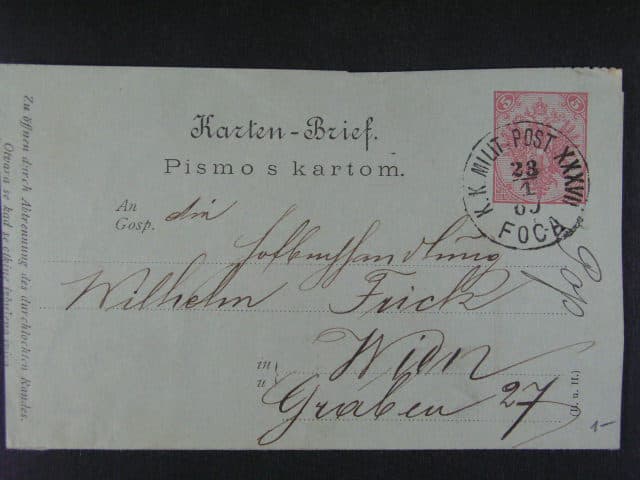 Karten-Brief.
Pismo s kartom.
5 5
K.K. MILIT. POST XXXVII
23
1
FOČA
An die
Gosp.
Hofbuchhandlung
Wilhelm Frick
in Wien
u
Graben 27
(D. u. H.)
Zu öffnen durch Abtrennung des durchlochten Randes.
Otvara se kad se otkine
1-